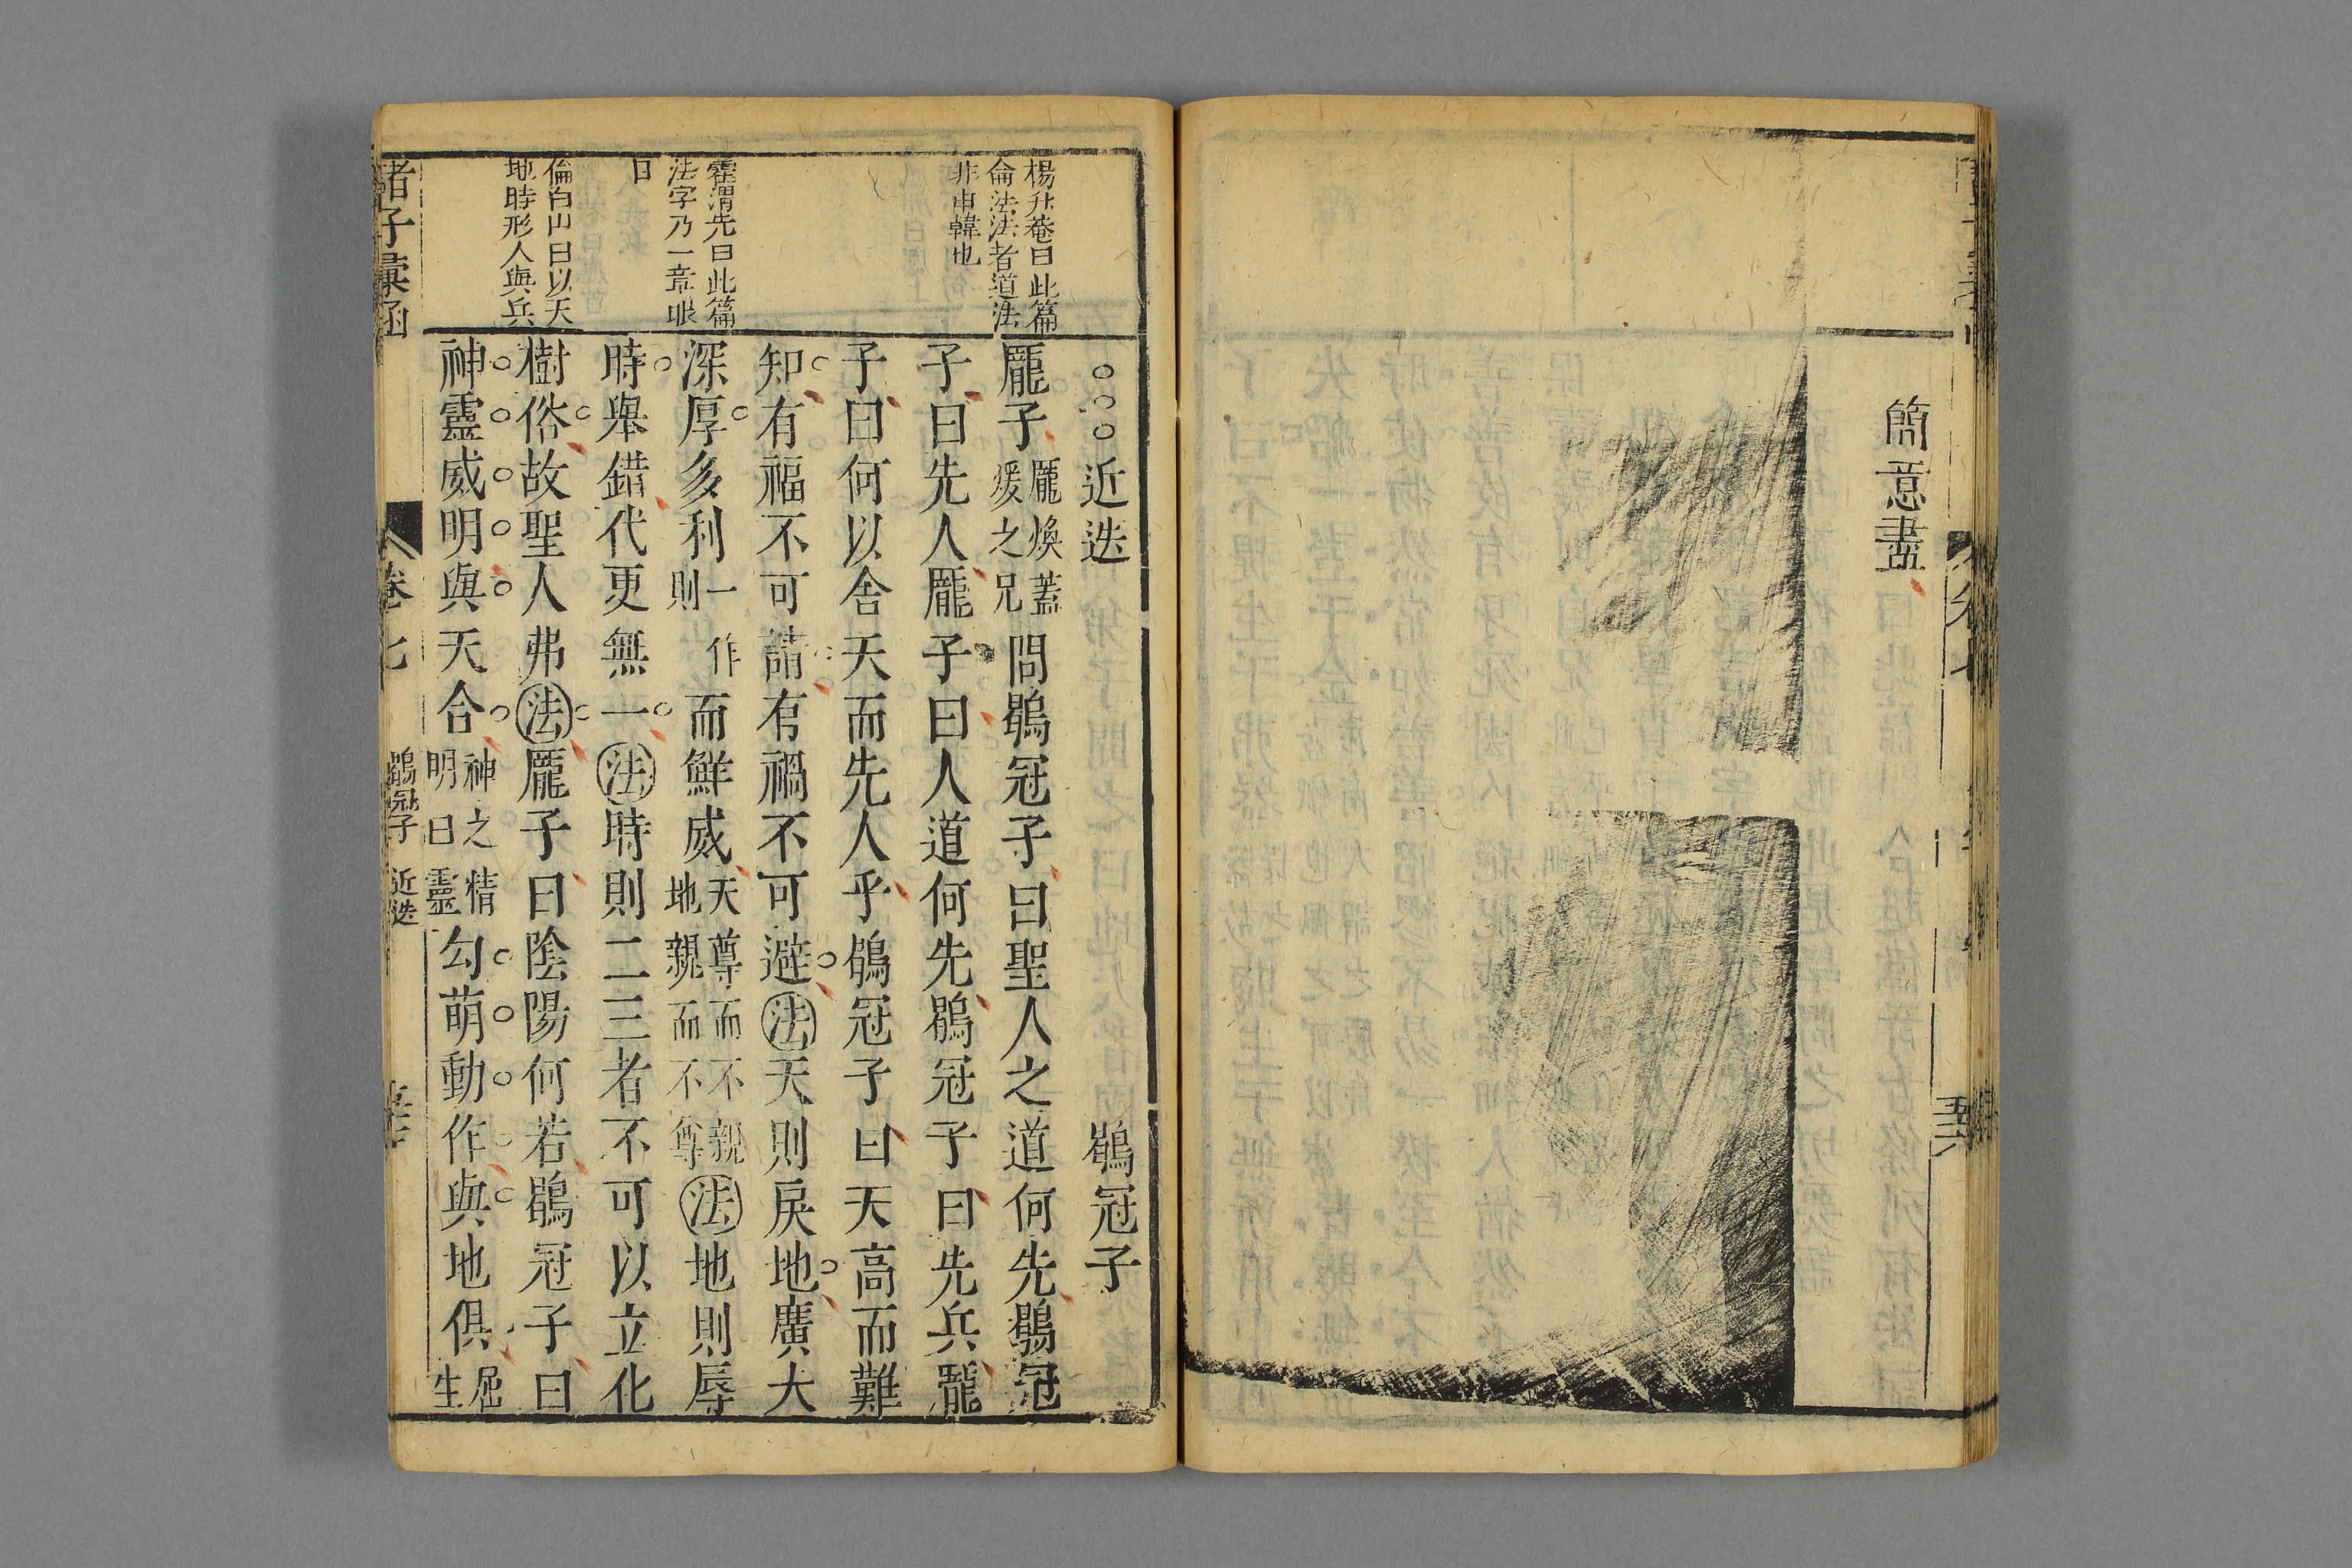 簡意盡
五十六
楊升菴曰此篇
侖法法者道法
非申韓也
霍渭先曰此篇
法字乃一章眼
目
倫白山曰以天
地時形人與兵
近迭 鶡冠子
龐子龐煥蓋煖之兄問鶡冠子曰聖人之道何先鶡冠
子曰先人龐子曰人道何先鶡冠子曰先兵龐
子曰何以舍天而先人乎鶡冠子曰天高而難
知有福不可請有禍不可避法天則戾地廣大
深厚多利一作則而鮮威天尊而不親地親而不尊法地則辱
時舉錯代更無一法時則二三者不可以立化
樹俗故聖人弗法龐子曰陰陽何若鶡冠子曰
神靈威明與天合神之精明曰靈勾萌動作與地俱屈生
諸子彙函 卷七 鶡冠子 近迭